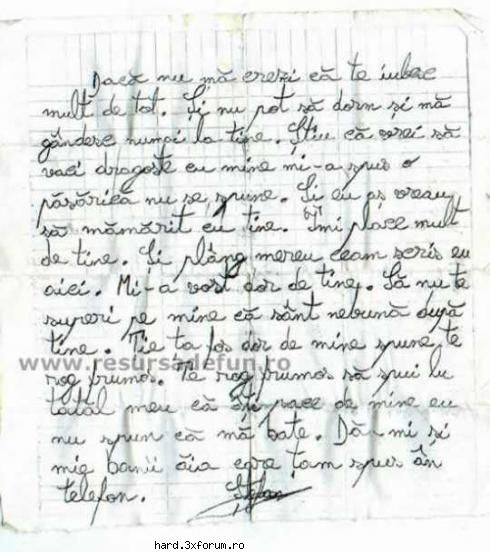 Dacă nu mă crezi că te iubesc
mult de tot. Și nu pot să dorm și mă
gândesc numai la tine. Știu că vrei să
vaci dragoste cu mine mi-a spus o
păsărica nu se spune. Și eu aș vreau
să mămărit cu tine. Îmi place mult
de tine. Și plâng mereu ceam scris eu
aici. Mi-a vost dor de tine. Să nu te
superi pe mine că sânt nebună după
tine. Tie ta fos dor de mine spune te
www.resursadefun.ro
rog frumos. Te rog frumos să spui lu
tatal meu că îți place de mine eu
nu spun că mă bate. Dă-mi și
mie banii ăia care țam spus ân
telefon.
hard.3xforum.ro